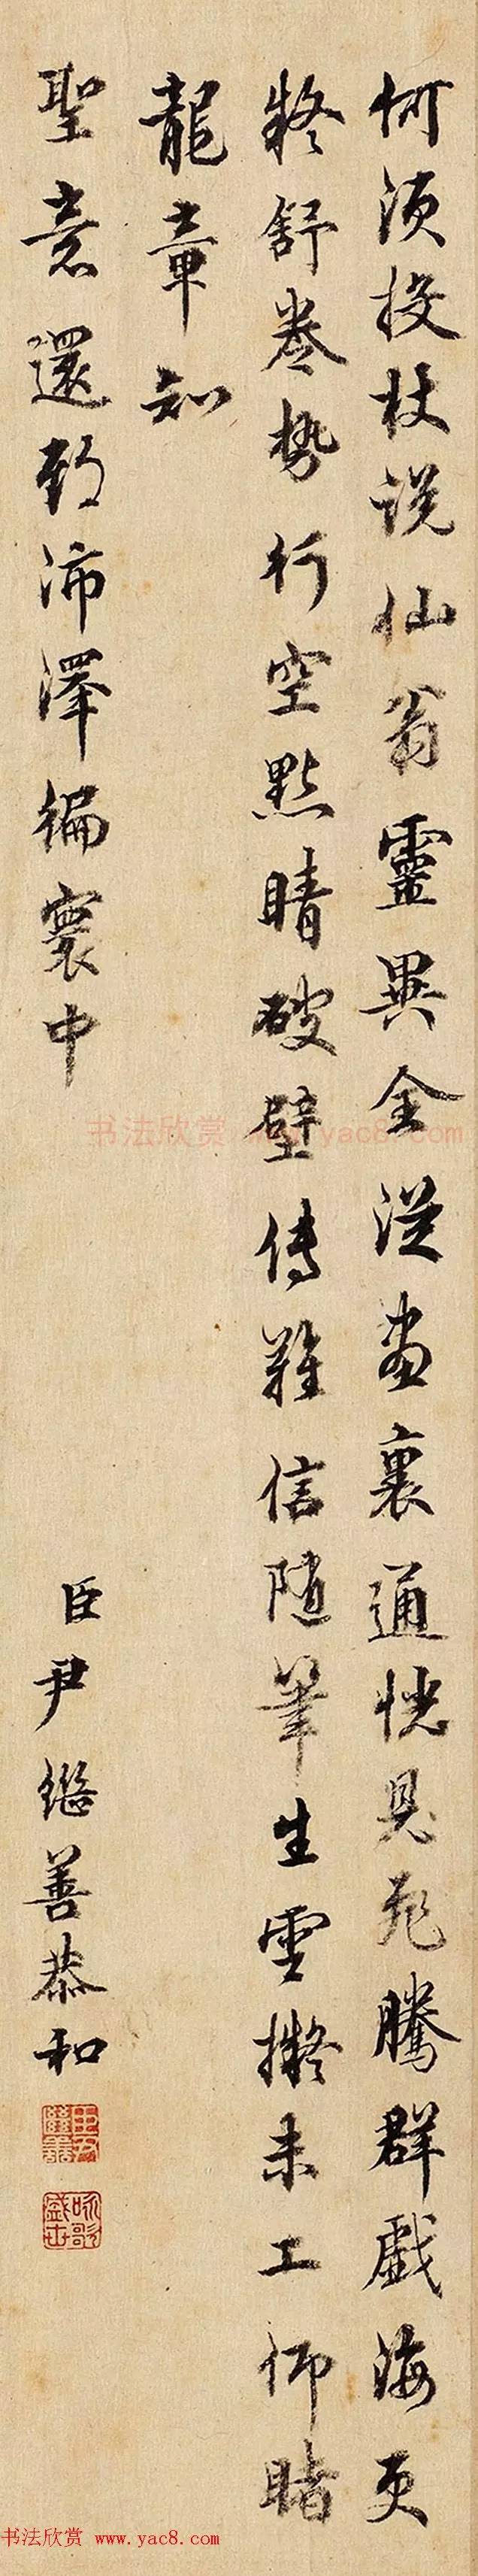 何須投杖說仙翁靈異全從畫裏通恍見飛騰群戲海更
疑舒卷勢行空點睛破壁傳難信隨筆生雲擬未工仰睹
龍章知
聖意還教沛澤徧寰中
臣尹繼善恭和
臣尹繼善
詠歌盛世
书法欣赏 www.yac8.com
书法欣赏 www.yac8.com